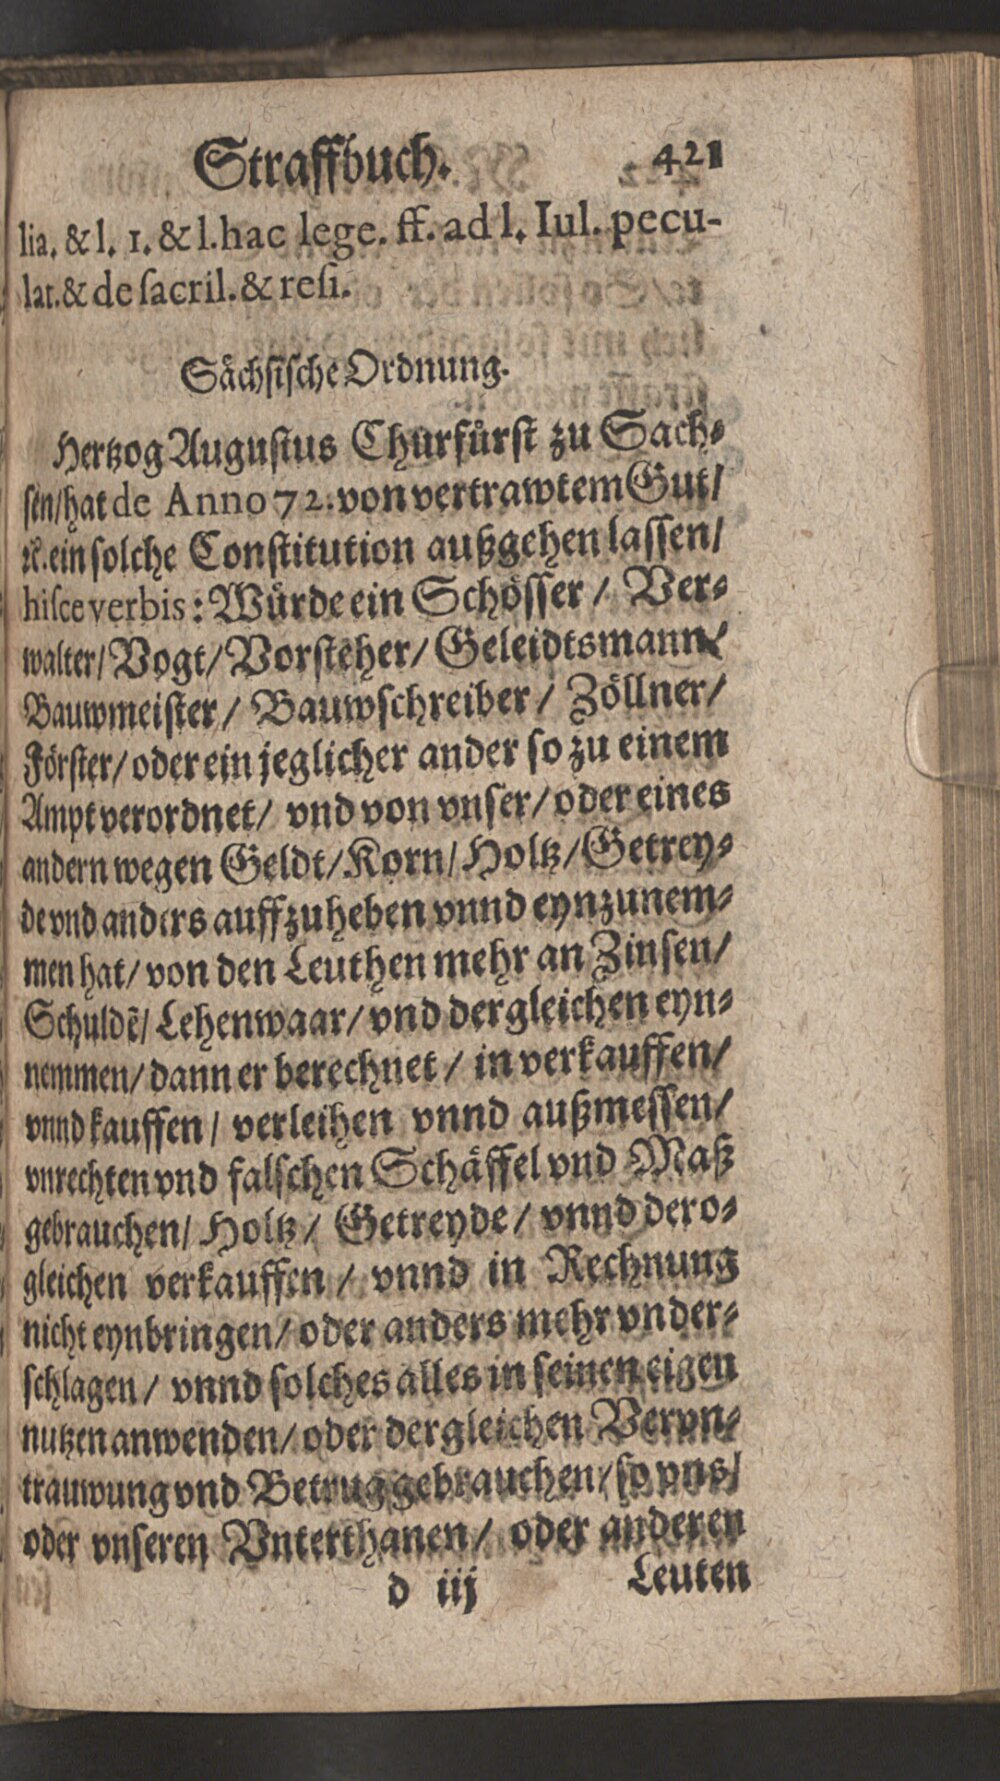 Straffbuch. 421
lia. & l. 1. & l. hac lege. ff. ad l. Iul. pecu-
lat. & de sacril. & resi.
Sächsische Ordnung.
Hertzog Augustus Churfürst zu Sach-
sen/ hat de Anno 72. von vertrawtem Gut/
ꝛc. ein solche Constitution außgehen lassen/
hisce verbis: Würde ein Schösser / Ver-
walter/ Vogt/ Vorsteher/ Geleidtsmann/
Bauwmeister/ Bauwschreiber/ Zöllner/
Förster/ oder ein jeglicher ander so zu einem
Ampt verordnet/ vnd von vnser/ oder eines
andern wegen Geldt/ Korn/ Holtz/ Getrey-
de vnd anders auffzuheben vnnd eynzunem-
men hat/ von den Leuthen mehr an Zinsen/
Schuldẽ/ Lehenwaar/ vnd dergleichen eyn-
nemmen/ dann er berechnet / in verkauffen/
vnnd kauffen / verleihen vnnd außmessen/
vnrechten vnd falschen Schäffel vnd Maß
gebrauchen/ Holtz / Getreyde / vnnd dero-
gleichen verkauffen / vnnd in Rechnung
nicht eynbringen/ oder anders mehr vnder-
schlagen / vnnd solches alles in seinen eigen
nutzen anwenden/ oder dergleichen Vervn-
trauwung vnd Betrug gebrauchen/ so vns/
oder vnseren Vnterthanen/ oder anderen
d iij Leuten